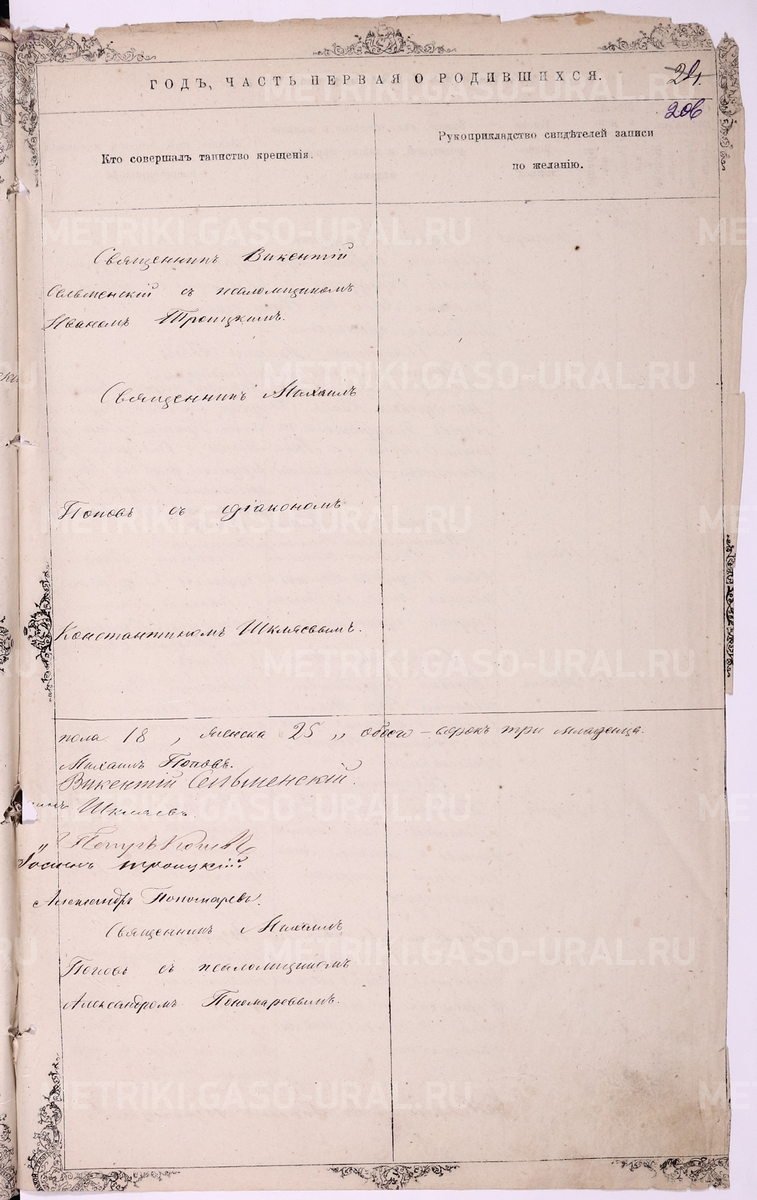 ГОДЪ, ЧАСТЬ ПЕРВАЯ О РОДИВШИХСЯ.
206
Кто совершалъ таинство крещенія.
Рукоприкладство свидѣтелей записи
по желанію.
Священникъ Викентій
Сельменскій съ псаломщикомъ
Иваномъ Троицкимъ.
Священникъ Михаилъ
Поповъ съ діакономъ
Константиномъ Шкляевымъ.
пола 18, женска 25, обоего - сорокъ три младенца.
Михаилъ Поповъ.
Викентій Сельменскій.
Шкляевъ
Петръ
Троицкій
Александръ Пономаревъ.
Священникъ Михаилъ
Поповъ съ псаломщикомъ
Александромъ Пономаревымъ.
METRIKI.GASO-URAL.RU